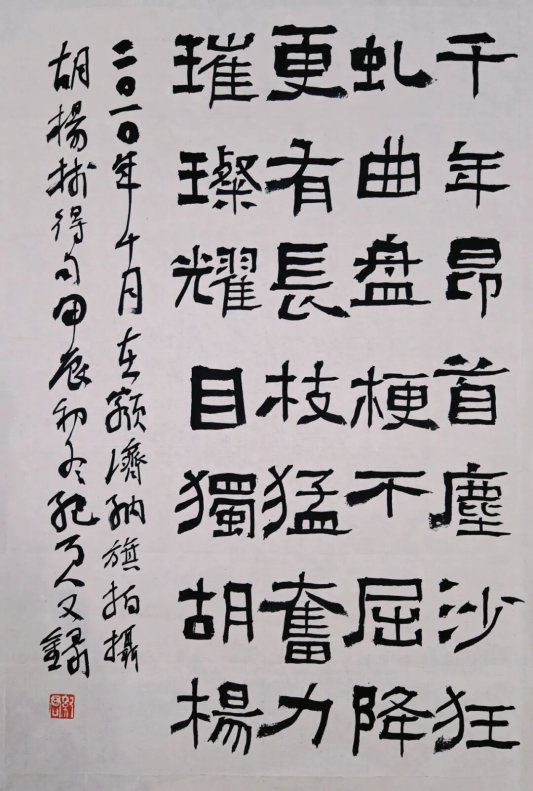 千年昂首塵沙狂
虬曲盘梗不屈降
更有長枝猛奮力
璀璨耀目獨胡楊
二〇一〇年十月在额濟納旗拍攝
胡楊树得句甲辰初冬 人又錄